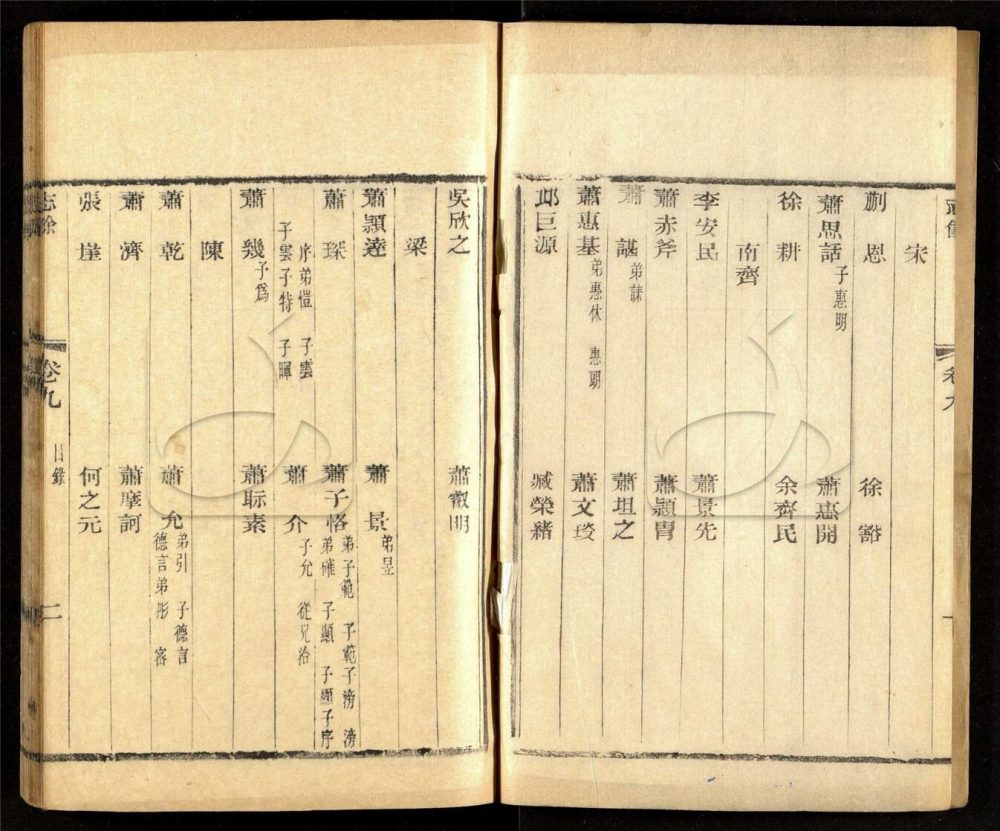 宋
蒯恩 徐豁
蕭思話 子惠明 蕭惠開
徐耕 余齊民
南齊
李安民 蕭景先
蕭赤斧 蕭穎胄
蕭諶 弟誄 蕭坦之
蕭惠基 弟惠休 惠朗 蕭文琰
邱巨源 臧榮緒
吳欣之 蕭叡明
梁
蕭穎達 蕭景 弟昱
蕭琛 蕭子恪 弟子範 子範子滂 滂
弟確 子顯 子顯子序
序弟愷 子雲
子雲子特 子暉 蕭介 子允 從兄洽
蕭幾 子爲 蕭眎素
陳
蕭乾 蕭允 弟引 子德言
德言弟彤 密
蕭濟 蕭摩訶
張崖 何之元
志餘 卷九 目錄 二